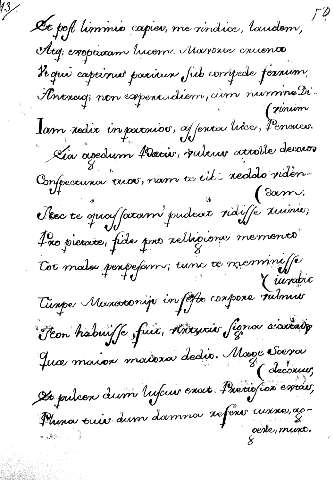 13/ 59.
Et post liminio capior, me vindice, laudem,
Atq; exoptatam lucem. Mavorte cruento
Ut qui captivus patitur sub compede ferrum,
Antraq; non experta diem, cum numine Di-
(vinum
Iam redit in patrios, asserta luce, Penates.
Eia agedum Vatis, vultus attolle decoros
Conspectura tuos, nam te tibi reddo viden-
(dam;
Nec te quassatam pudeat vidisse ruinis;
Pro pietate, fide pro relligione memento
Tot mala perpessam; tunc te meminisse
(iuvabit
Turpe Maratonijs in festo corpore vulnus
Non habuisse, fuit, virtutis signa
Quae maior maiora dedit. Magis
(decorus,
Et pulcer dum luscus erat. Pretiosior extas,
Plura tuis dum damna refers turre, ag-
gere, muro.